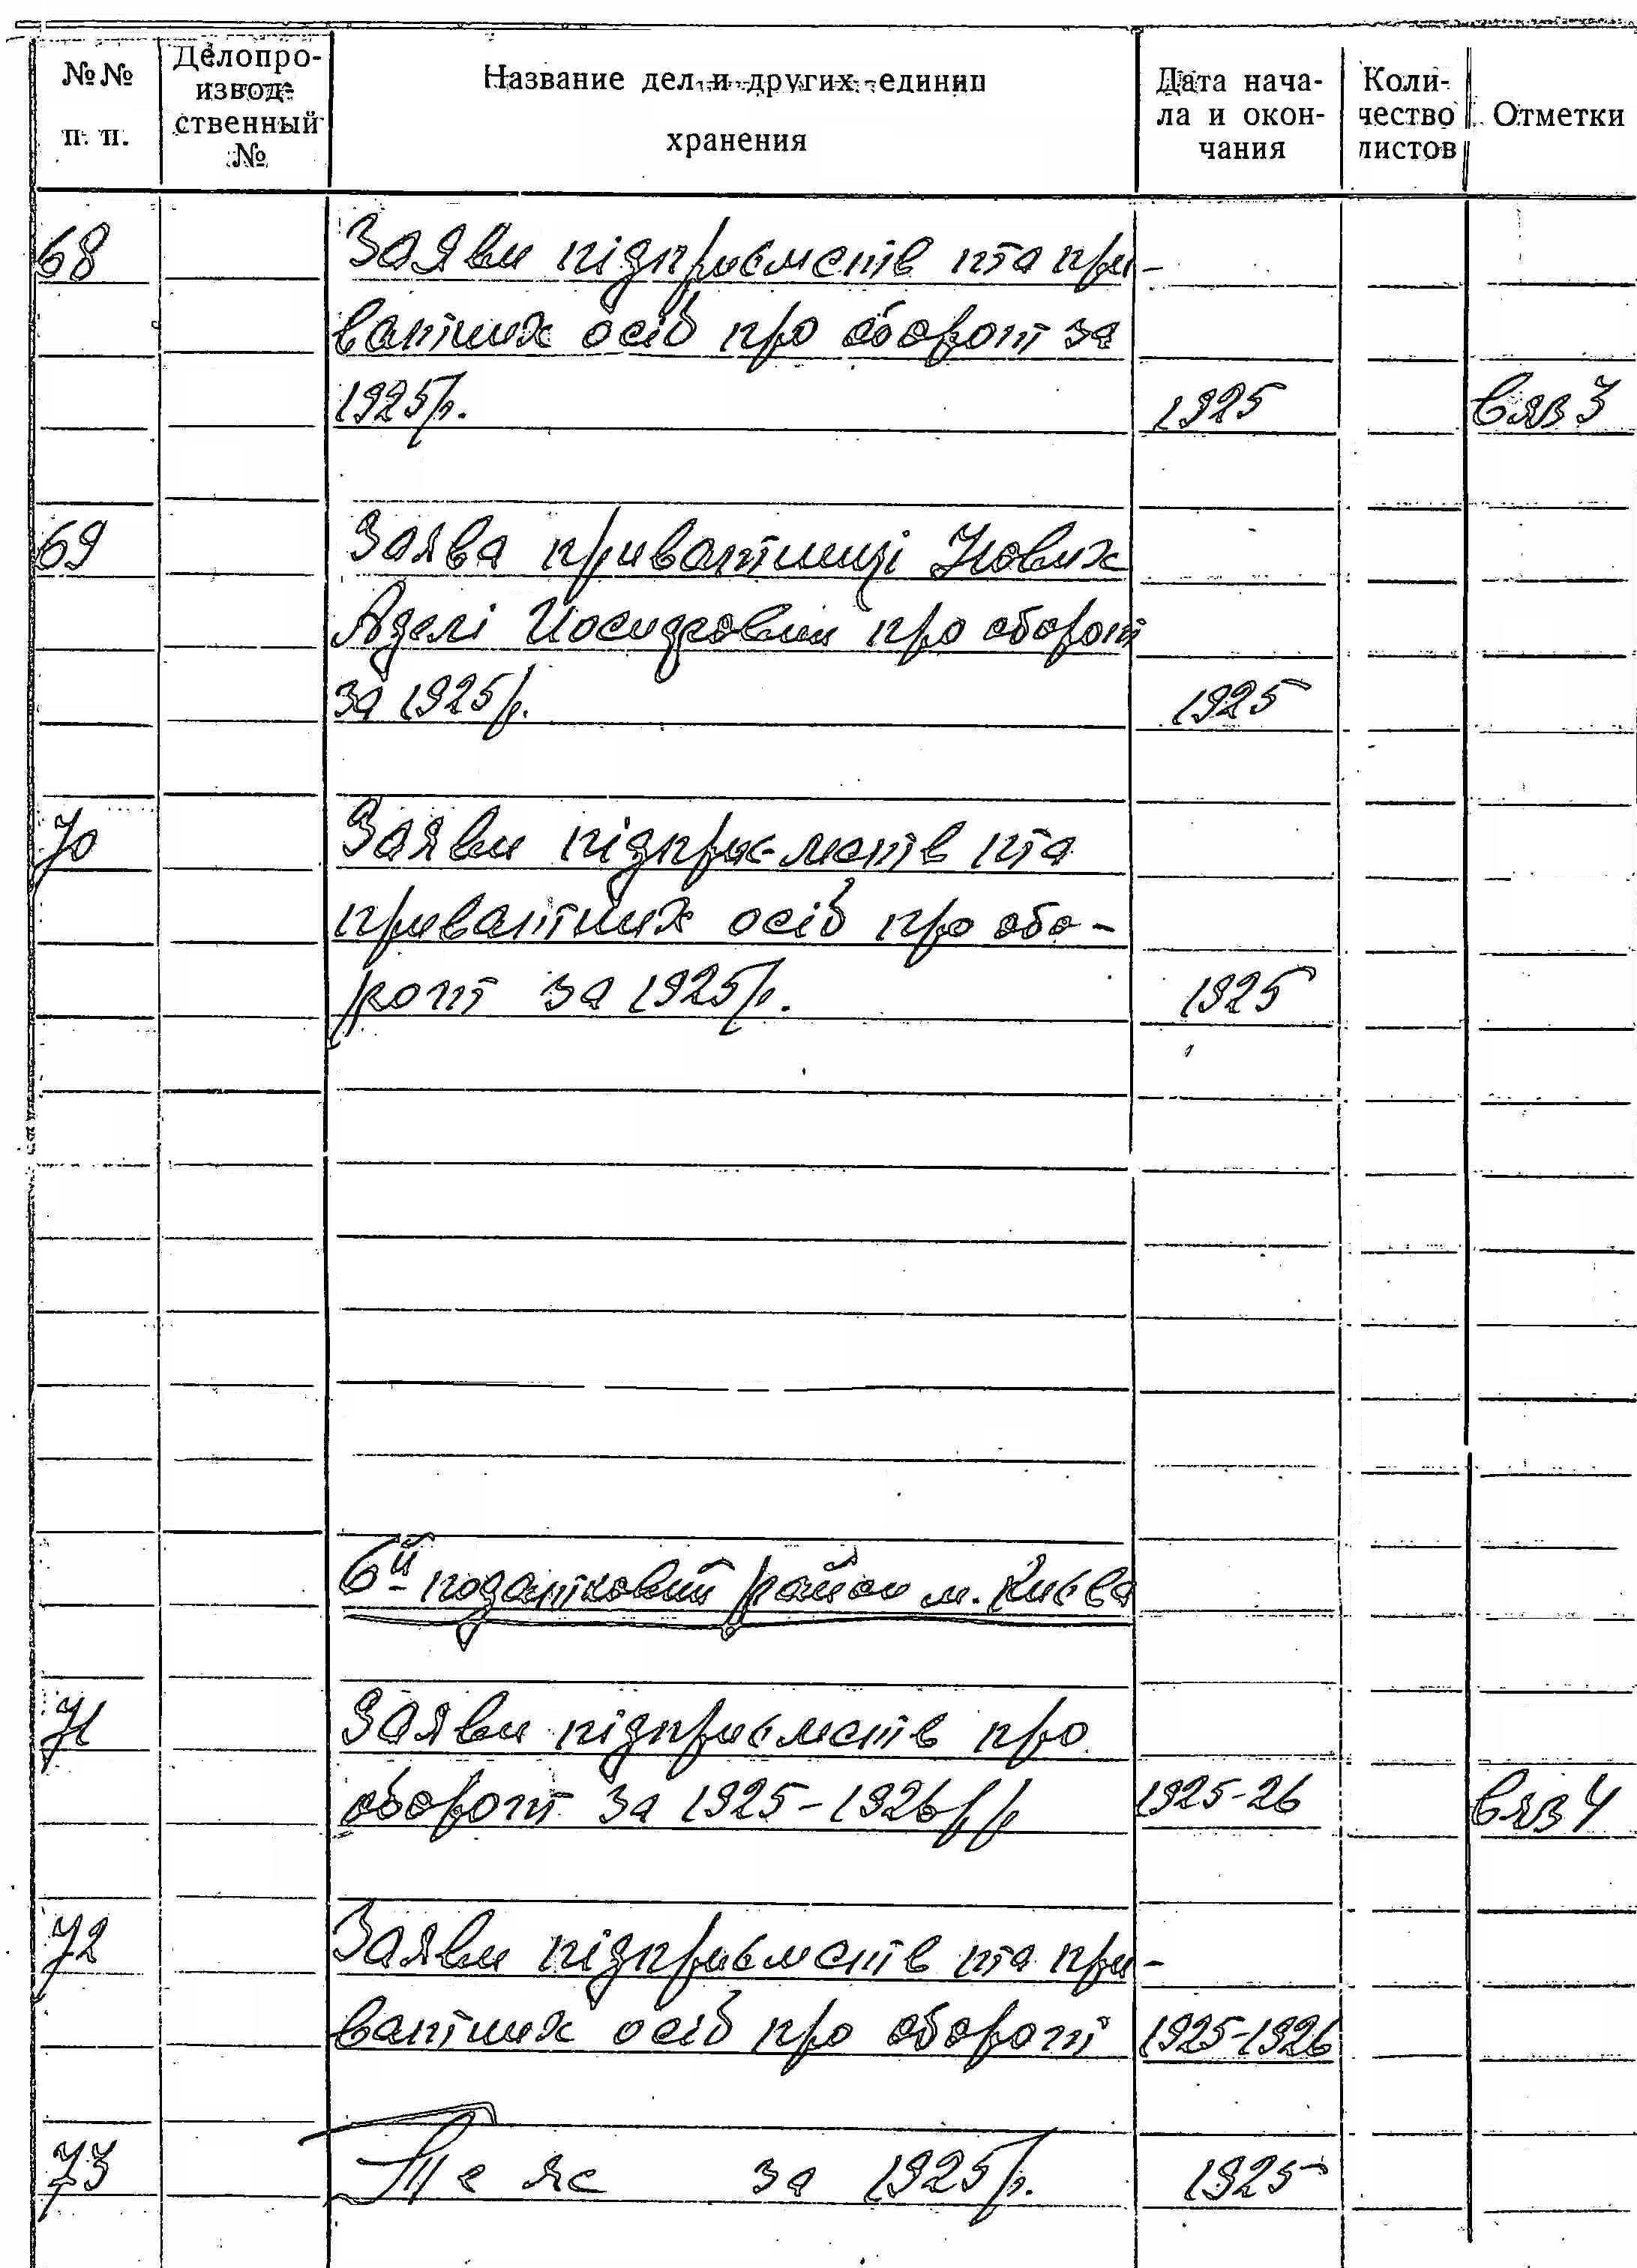 №№ п. п.
Делопроизводственный №
Название дел и других единиц хранения
Дата начала и окончания
Количество листов
Отметки
68
Заяви підприємств та при-
ватних осіб про оборот за
1925р. 1925 Вяз 3
69
Заява приватниці Новик
Аделі Йосипровни про оборот
за 1925р. 1925
70
Заяви підприємств та
приватних осіб про обо-
рот за 1925р. 1925
6й податковий район м. Києва
71
Заяви підприємств про
оборот за 1925-1926рр 1925-26 Вяз 4
72
Заяви підприємств та при-
ватних осіб про оборот 1925-1926
73
Те ж за 1925р. 1925